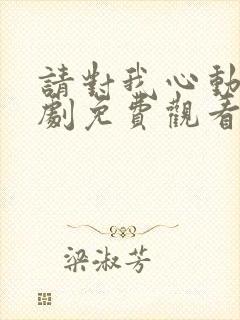 請對我心動
劇免費觀看
梁淑芳